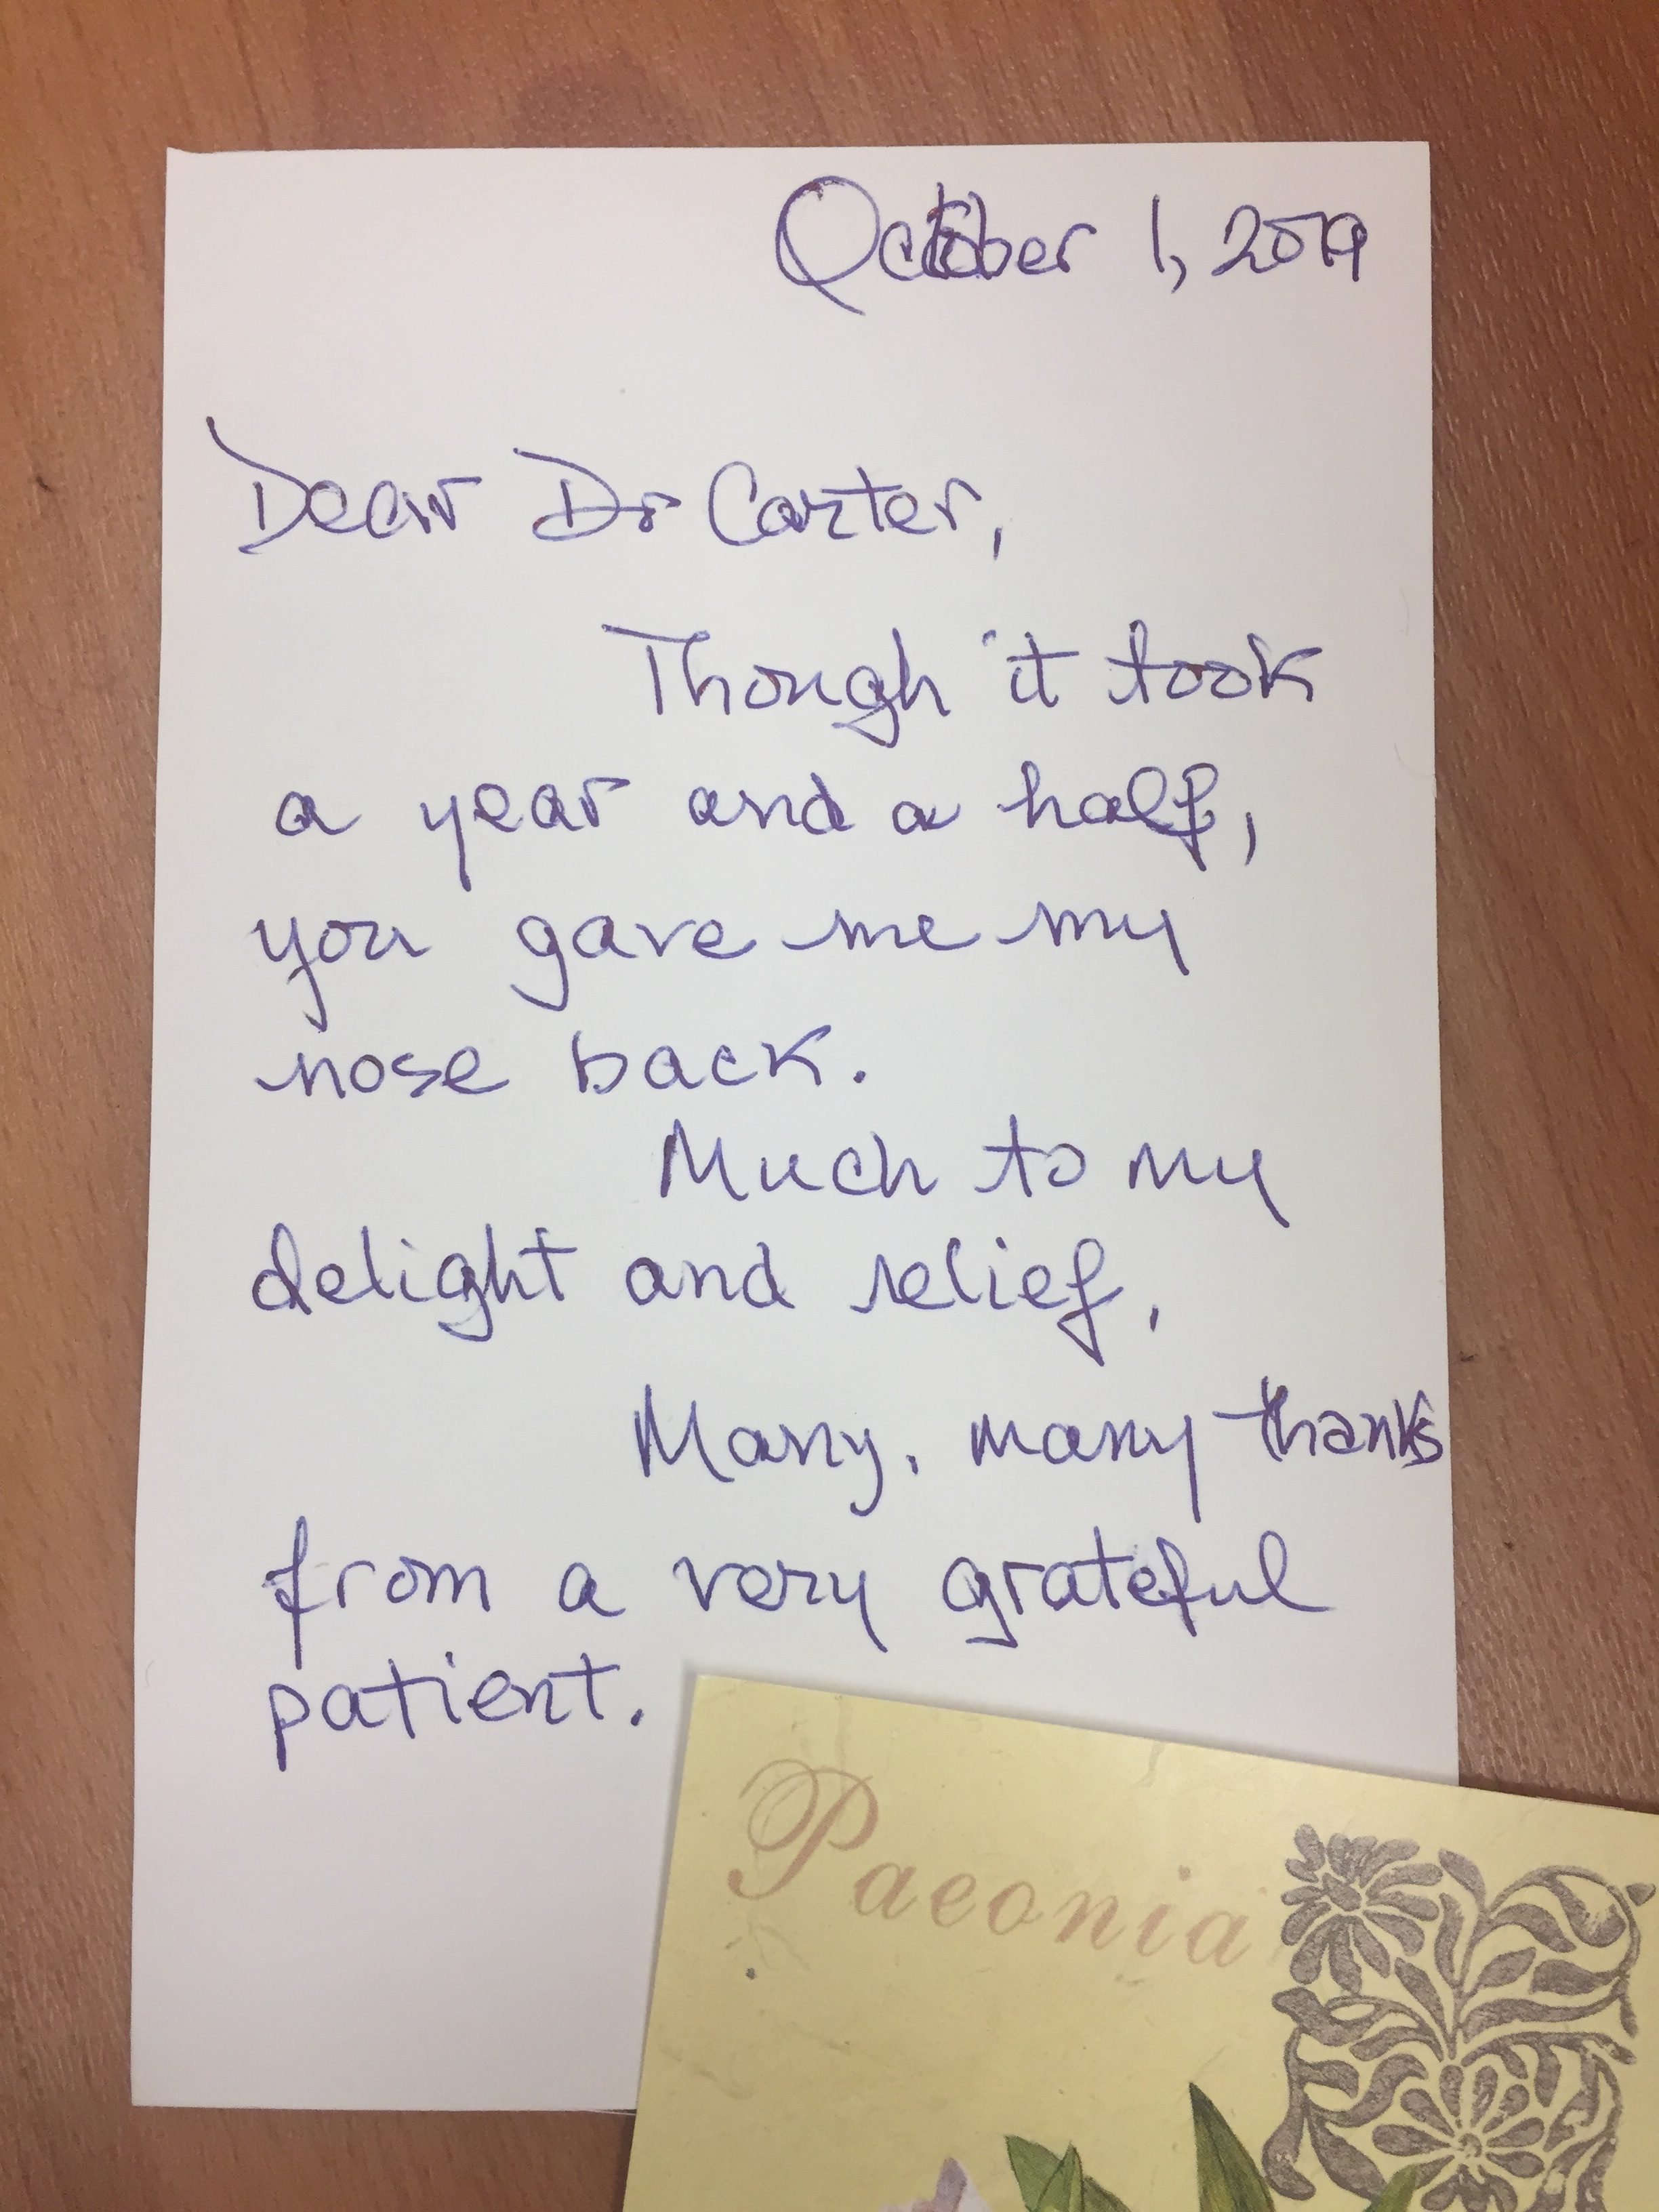 October 1, 2019
Dear Dr Carter,
Though it took
a year and a half,
you gave me my
nose back.
Much to my
delight and relief,
Many, many thanks
from a very grateful
patient.
Paeonia